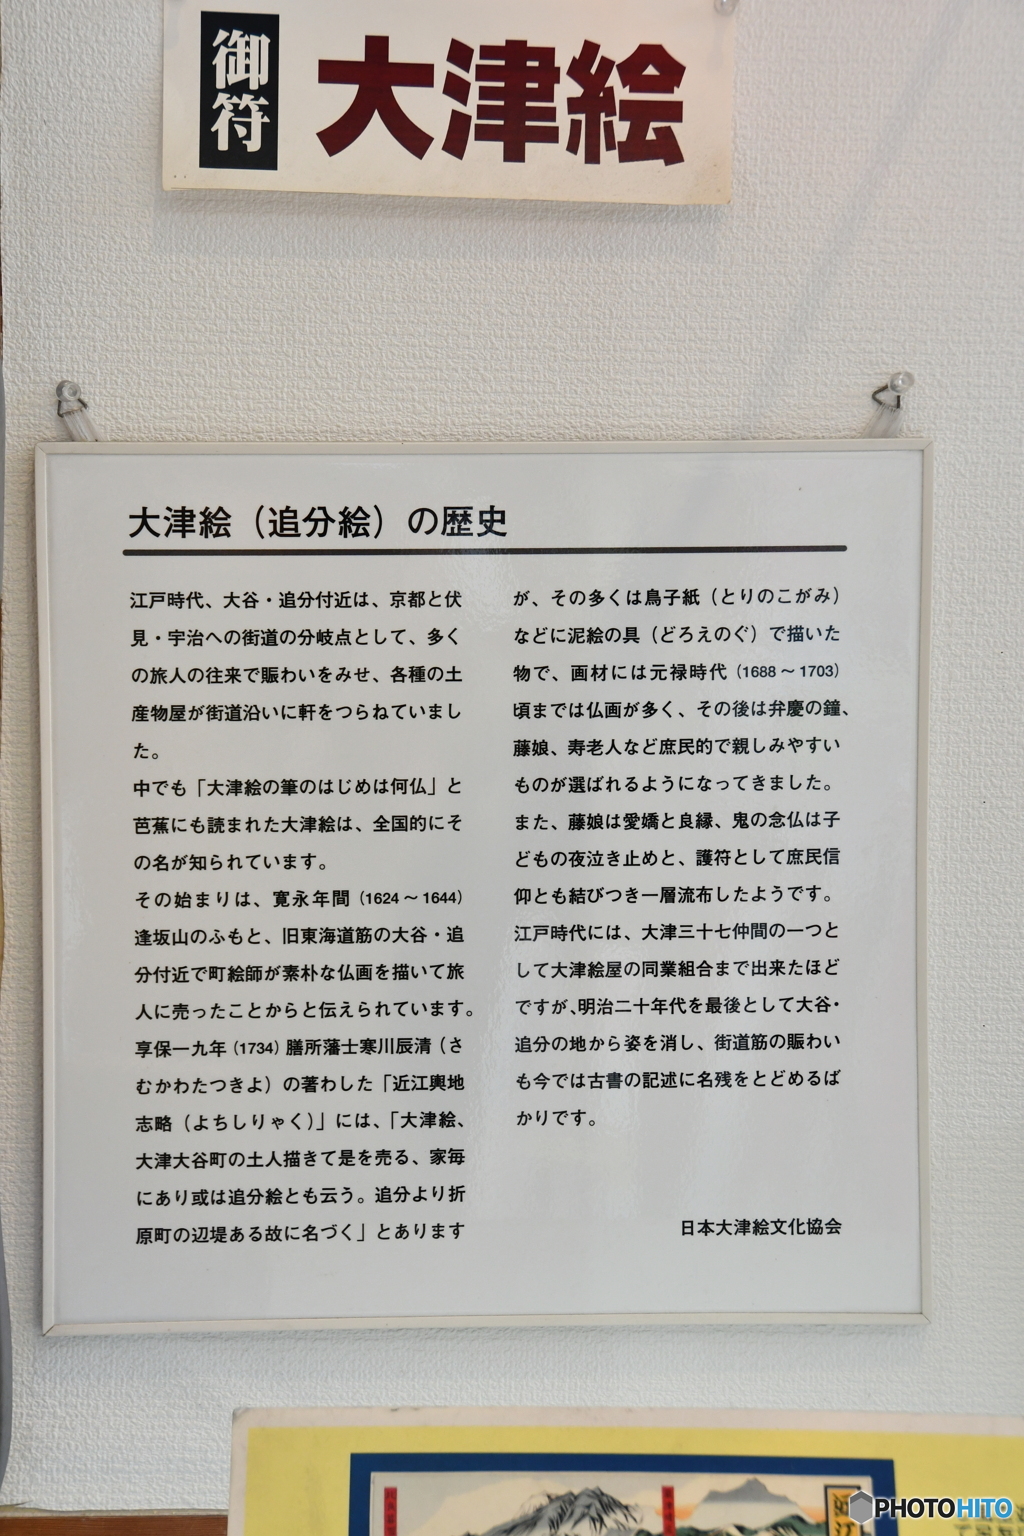 御符
大津絵
大津絵（追分絵）の歴史
江戸時代、大谷・追分付近は、京都と伏
見・宇治への街道の分岐点として、多く
の旅人の往来で賑わいをみせ、各種の土
産物屋が街道沿いに軒をつらねていまし
た。
中でも「大津絵の筆のはじめは何仏」と
芭蕉にも読まれた大津絵は、全国的にそ
の名が知られています。
その始まりは、寛永年間（1624～1644）
逢坂山のふもと、旧東海道筋の大谷・追
分付近で町絵師が素朴な仏画を描いて旅
人に売ったことからと伝えられています。
享保一九年（1734）膳所藩士寒川辰清（さ
むかわたつきよ）の著わした「近江輿地
志略（よちしりゃく）」には、「大津絵、
大津大谷町の土人描きて是を売る、家毎
にあり或は追分絵とも云う。追分より折
原町の辺堤ある故に名づく」とあります
が、その多くは鳥子紙（とりのこがみ）
などに泥絵の具（どろえのぐ）で描いた
物で、画材には元禄時代（1688～1703）
頃までは仏画が多く、その後は弁慶の鐘、
藤娘、寿老人など庶民的で親しみやすい
ものが選ばれるようになってきました。
また、藤娘は愛嬌と良縁、鬼の念仏は子
どもの夜泣き止めと、護符として庶民信
仰とも結びつき一層流布したようです。
江戸時代には、大津三十七仲間の一つと
して大津絵屋の同業組合まで出来たほど
ですが、明治二十年代を最後として大谷・
追分の地から姿を消し、街道筋の賑わい
も今では古書の記述に名残をとどめるば
かりです。
日本大津絵文化協会
PHOTOHITO